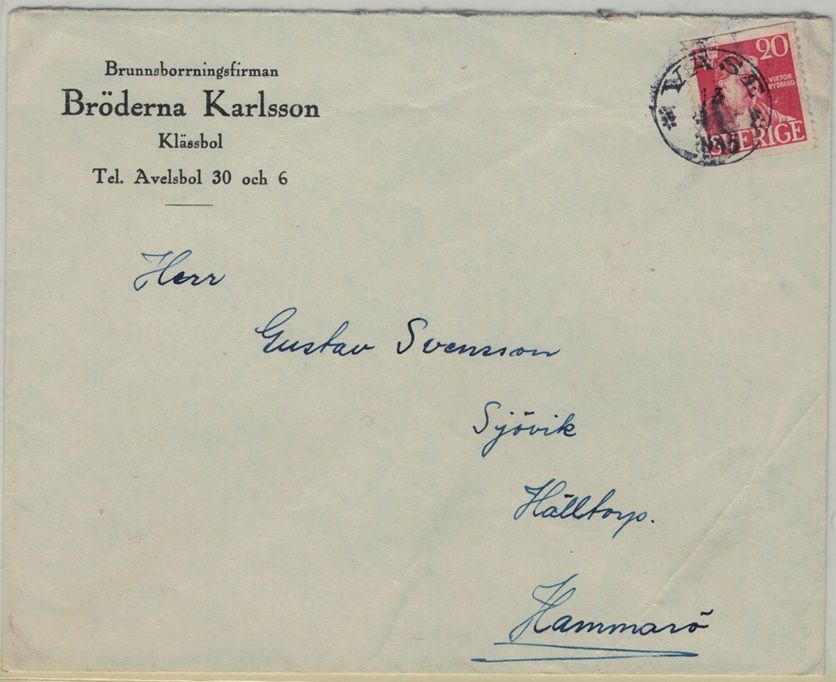 Brunnsborrningsfirman
Bröderna Karlsson
Klässbol
Tel. Avelsbol 30 och 6
20
VIKTOR
RYDBERG
SVERIGE
VÄSE
Herr
Gustav Svensson
Sjövik
Hälltorp.
Hammarö